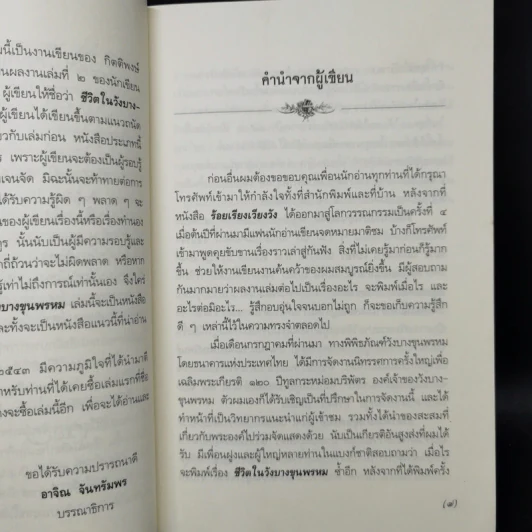 มนี้เป็นงานเขียนของ กิตติพงษ์
นผลงานเล่มที่ ๒ ของนักเขียน
ผู้เขียนให้ชื่อว่า ชีวิตในวังบาง-
ผู้เขียนได้เขียนขึ้นตามแนวถนัด
ยวกับเล่มก่อน หนังสือประเภทนี้
ร เพราะผู้เขียนจะต้องเป็นผู้รอบรู้
เจนจัด มิฉะนั้นจะท้าทายต่อการ
ได้รับความรู้ผิด ๆ พลาด ๆ จะ
ของผู้เขียนเรื่องนี้หรือเรื่องทำนอง
กุร นั้นนับเป็นผู้มีความรอบรู้และ
ถี่ถ้วนว่าจะไม่ผิดพลาด หรือหาก
รู้เท่าไม่ถึงการณ์เท่านั้นเอง จึงใคร่
วังบางขุนพรหม เล่มนี้จะเป็นหนังสือ
และทั้งจะเป็นหนังสือแนวนี้ที่น่าอ่าน
๒๕๔๓ มีความภูมิใจที่ได้นำมาตี
าหรับท่านที่ได้เคยซื้อเล่มแรกที่ชื่อ
างจะซื้อเล่มนี้อีก เพื่อจะได้อ่านและ
ขอได้รับความปรารถนาดี
อาจิณ จันทรัมพร
บรรณาธิการ
คำนำจากผู้เขียน
ก่อนอื่นผมต้องขอขอบคุณเพื่อนนักอ่านทุกท่านที่ได้กรุณา
โทรศัพท์เข้ามาให้กำลังใจทั้งที่สำนักพิมพ์และที่บ้าน หลังจากที่
หนังสือ ร้อยเรียงเวียงวัง ได้ออกมาสู่โลกวรรณกรรมเป็นครั้งที่ ๔
เมื่อต้นปีที่ผ่านมามีแฟนนักอ่านเขียนจดหมายมาติชม บ้างก็โทรศัพท์
เข้ามาพูดคุยขับขานเรื่องราวเล่าสู่กันฟัง สิ่งที่ไม่เคยรู้มาก่อนก็รู้มาก
ขึ้น ช่วยให้งานเขียนงานค้นคว้าของผมสมบูรณ์ยิ่งขึ้น มีผู้สอบถาม
กันมากมายว่าผลงานเล่มต่อไปเป็นเรื่องอะไร จะพิมพ์เมื่อไร และ
อะไรต่อมิอะไร... รู้สึกอบอุ่นใจจนบอกไม่ถูก ก็จะขอเก็บความรู้สึก
ดี ๆ เหล่านี้ไว้ในความทรงจำตลอดไป
เมื่อเดือนกรกฎาคมที่ผ่านมา ทางพิพิธภัณฑ์วังบางขุนพรหม
โดยธนาคารแห่งประเทศไทย ได้มีการจัดงานนิทรรศการครั้งใหญ่เพื่อ
เฉลิมพระเกียรติ ๑๒๐ ปีทูลกระหม่อมบริพัตร องค์เจ้าของวังบาง-
ขุนพรหม ตัวผมเองก็ได้รับเชิญเป็นที่ปรึกษาในการจัดงานนี้ และได้
ทำหน้าที่เป็นวิทยากรแนะนำแก่ผู้เข้าชม รวมทั้งได้นำของสะสมที่
เกี่ยวกับพระองค์ไปร่วมจัดแสดงด้วย นับเป็นเกียรติอันสูงส่งที่ผมได้
รับ มีเพื่อนฝูงและผู้ใหญ่หลายท่านในแบงก์ชาติสอบถามว่า เมื่อไร
จะพิมพ์เรื่อง ชีวิตในวังบางขุนพรหม ซ้ำอีก หลังจากที่ได้พิมพ์ครั้ง
(๗)